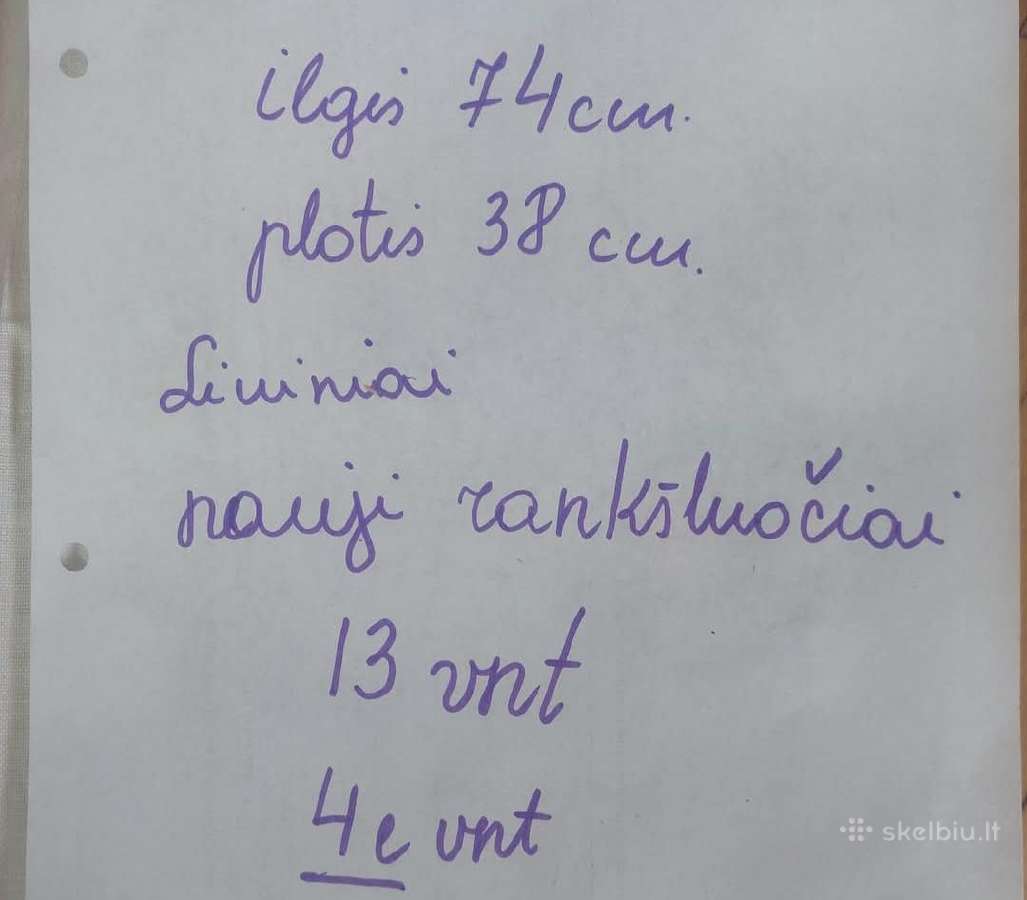 ilgis 74cm.
plotis 38 cm.
Lininiai
nauji rankšluočiai
13 vnt
4e vnt
skelbiu.lt